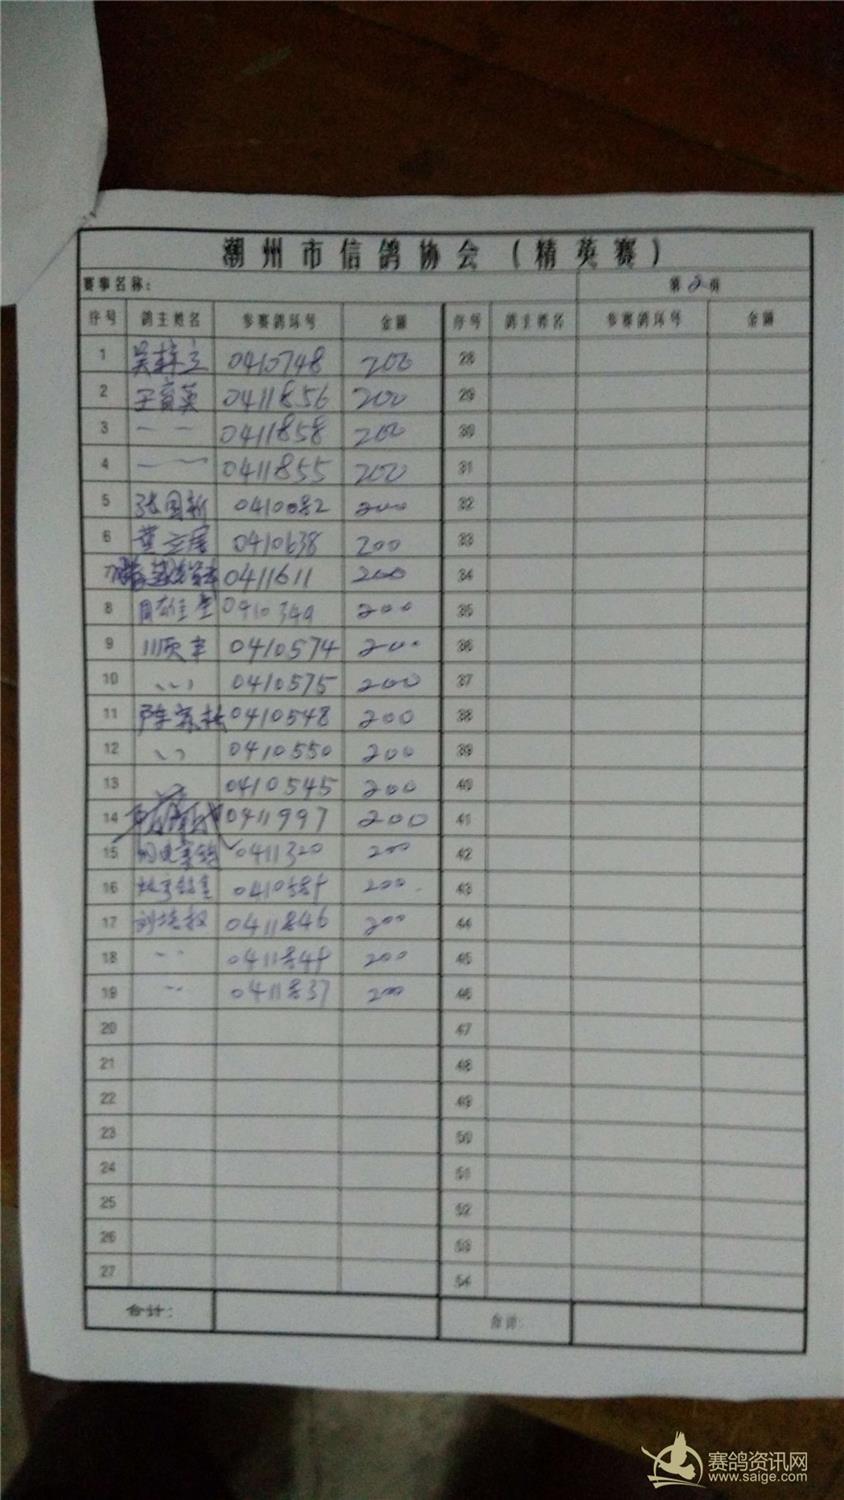 潮州市信鸽协会(精英赛)
赛事名称: 第2页
序号 鸽主姓名 参赛鸽环号 金额 序号 鸽主姓名 参赛鸽环号 金额
1 0410748 200 28
2 0411856 200 29
3 一 一 0411858 200 30
4 一 一 0411855 200 31
5 张国新 0410082 200 32
6 0410638 200 33
7 0411611 200 34
8 0410344 200 35
9 顺丰 0410574 200 36
10 、、 0410575 200 37
11 0410548 200 38
12 、、 0410550 200 39
13 0410545 200 40
14 0411997 200 41
15 0411320 200 42
16 200 43
17 刘培权 0411846 200 44
18 、、 200 45
19 、、 0411837 200 46
20 47
21 48
22 49
23 50
24 51
25 52
26 53
27 54
合计: 合计:
赛鸽资讯网
www.saige.com